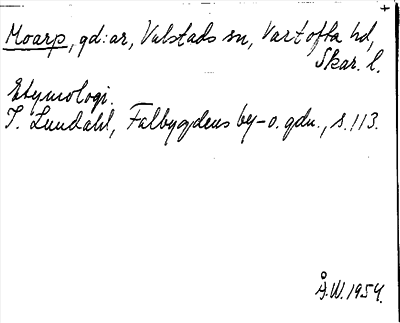 Moarp, gd:ar, Valstads sn, Vartofta hd,
Skar. l.
Etymologi.
I. Lundahl, Falbygdens by- o. gdn., s. 113.
Å.W. 1954.